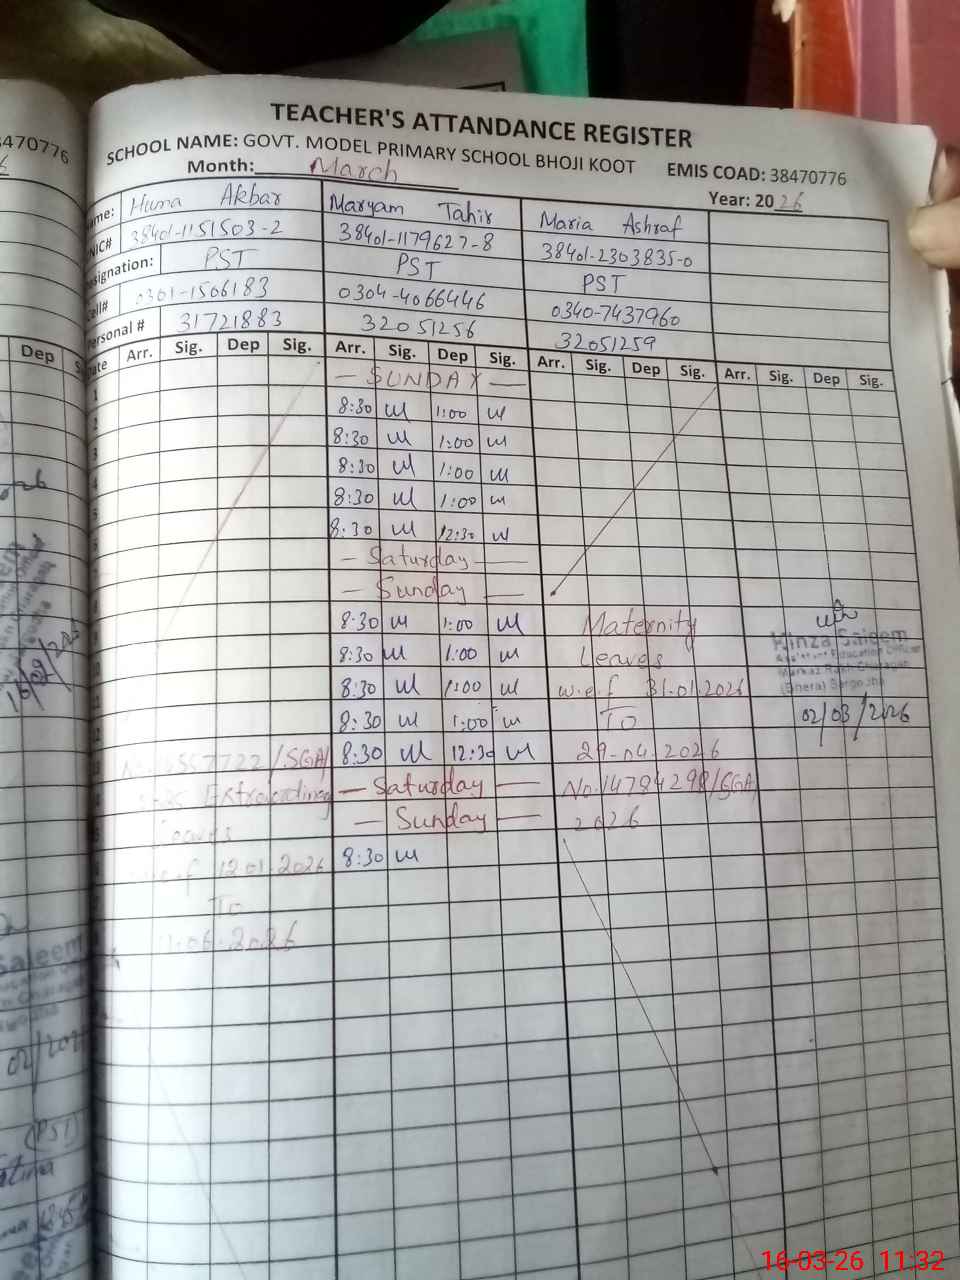 TEACHER'S ATTANDANCE REGISTER
SCHOOL NAME: GOVT. MODEL PRIMARY SCHOOL BHOJI KOOT EMIS COAD: 38470776
Month: March Year: 2026
Name: Huma Akbar Maryam Tahir Maria Ashraf
CNIC# 38401-1151503-2 38401-1179627-8 38401-2303835-0
Designation: PST PST PST
Cell# 0301-1506183 0304-4066446 0340-7437960
Personal # 31721883 32051256 32051259
Date Arr. Sig. Dep Sig. Arr. Sig. Dep Sig. Arr. Sig. Dep Sig. Arr. Sig. Dep Sig.
1 — SUNDAY —
2 8:30 1:00
3 8:30 1:00
4 8:30 1:00
5 8:30 1:00
8:30 12:30
— Saturday —
— Sunday —
8:30 1:00 Maternity
8:30 1:00 Leaves
8:30 1:00 w.e.f 31-01-2026
8:30 1:00 To
8:30 12:30 29-04-2026
— Saturday — No.14784298/SGA
— Sunday — 2026
8:30
/SGA
Extraordinary
Leaves
12.01.2026
To
06.2026
Hinza Saleem
Assistant Education Officer
02/03/2026
38470776
Dep
16/02/
Saleem
(PST)
16-03-26 11:32